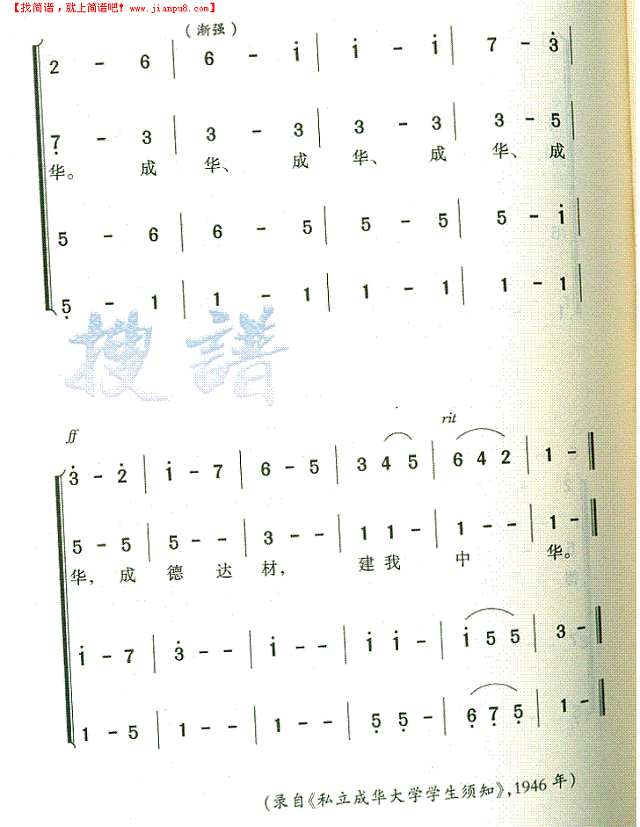 【找简谱，就上简谱吧! www.jianpu8.com】
(渐强)
2 - 6 | 6 - i̇ | i̇ - i̇ | 7 - 3̇ |
7̣ - 3 | 3 - 3 | 3 - 3 | 3 - 5 |
华。 成 华、 成 华、 成 华、 成
5 - 6 | 6 - 5 | 5 - 5 | 5 - i̇ |
5̣ - 1 | 1 - 1 | 1 - 1 | 1 - 1 |
搜譜
ff rit
3̇ - 2̇ | i̇ - 7 | 6 - 5 | 3 4 5 | 6 4 2 | 1 - ‖
5 - 5 | 5 - - | 3 - - | 1 1 - | 1 - - | 1 - ‖
华, 成 德 达 材, 建 我 中 华。
i̇ - 7 | 3̇ - - | i̇ - - | i̇ i̇ - | i̇ 5 5 | 3 - ‖
1 - 5 | 1 - - | 1 - - | 5̣ 5̣ - | 6̣ 7̣ 5̣ | 1 - ‖
(录自《私立成华大学学生须知》,1946 年)